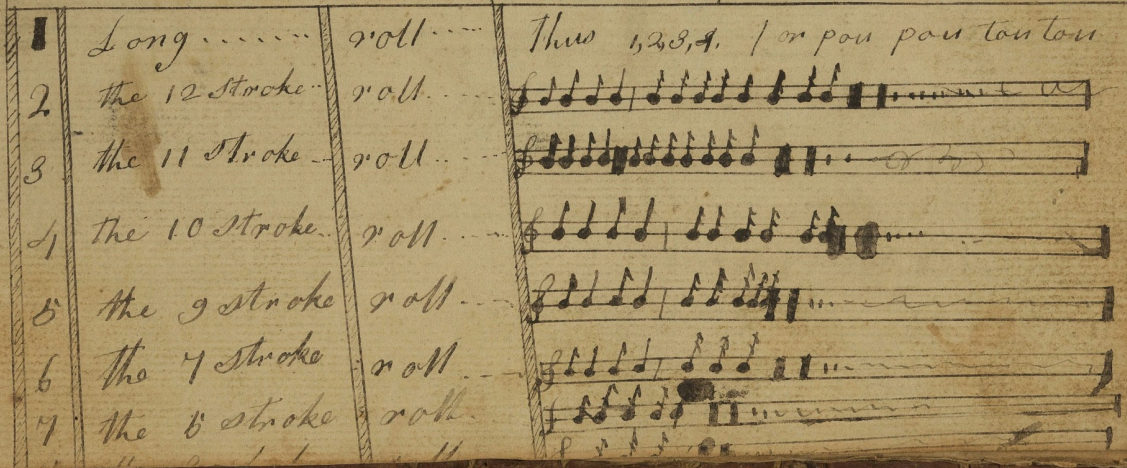 1 Long ....... roll .... Thus 1,2,3,4. / or pou pou tou tou
2 the 12 Stroke .. roll ....
3 the 11 Stroke .. roll ....
4 the 10 Stroke .. roll ....
5 the 9 stroke roll ....
6 the 7 stroke roll ....
7 the stroke roll